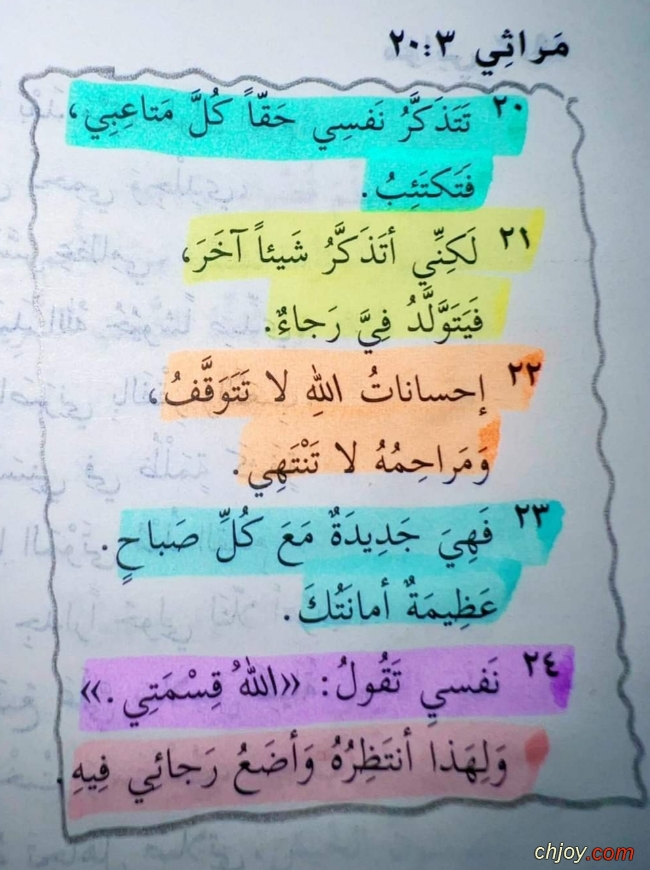 مَراثِي ٢٠:٣
٢٠ تَتَذَكَّرُ نَفسِي حَقّاً كُلَّ مَتاعِبِي،
فَتَكتَئِبُ.
٢١ لَكِنِّي أتَذَكَّرُ شَيئاً آخَرَ،
فَيَتَوَّلَّدُ فِيَّ رَجاءٌ.
٢٢ إحساناتُ اللهِ لا تَتَوَقَّفُ،
وَمَراحِمُهُ لا تَنْتَهِي.
٢٣ فَهِيَ جَدِيدَةٌ مَعَ كُلِّ صَباحٍ.
عَظِيمَةٌ أمانَتُكَ.
٢٤ نَفسي تَقُولُ: «اللهُ قِسْمَتِي.»
وَلِهَذا أنتَظِرُهُ وَأضَعُ رَجائِي فِيهِ.
chjoy.com